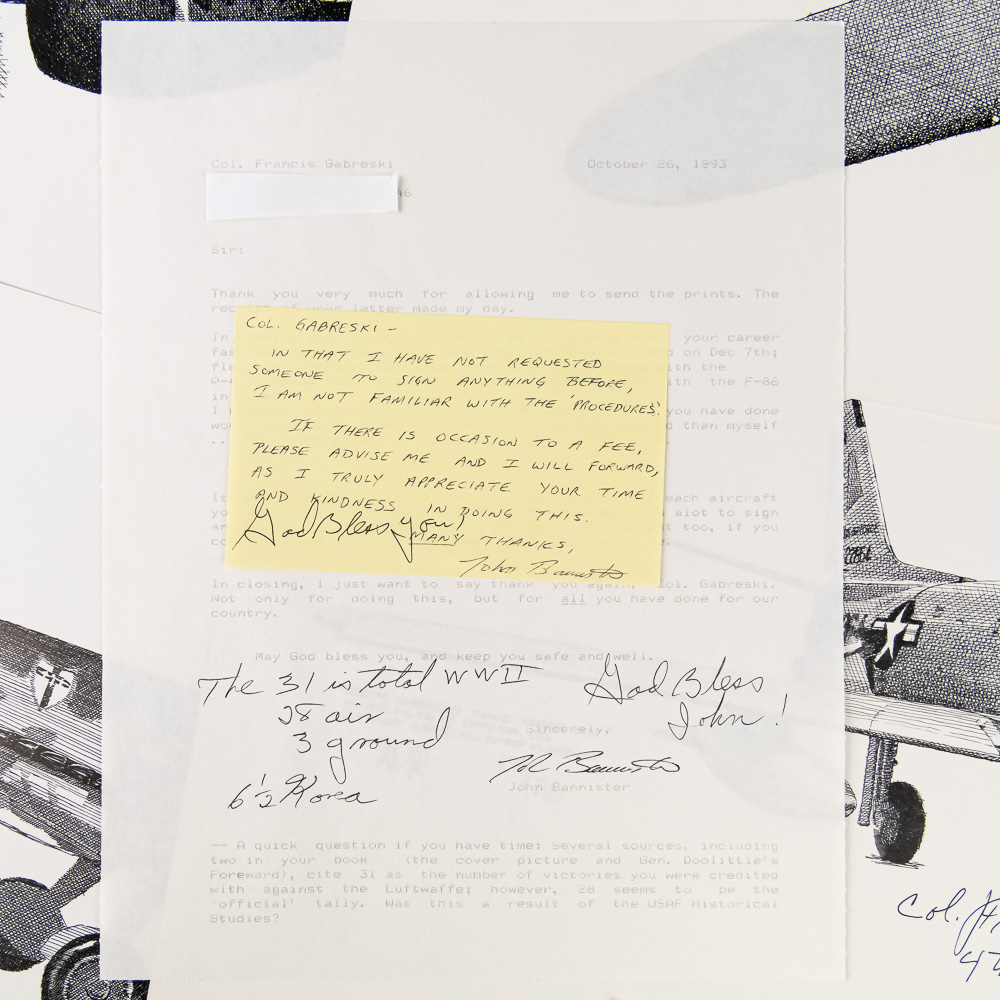 Col. Francis Gabreski
October 26, 1993
46
Sir:
Thank you very much for allowing me to send the prints. The
of your letter made my day.
In your career
on Dec 7th;
with the
with the F-86
in
I you have done
than myself
...
COL. GABRESKI -
IN THAT I HAVE NOT REQUESTED
SOMEONE TO SIGN ANYTHING BEFORE,
I AM NOT FAMILIAR WITH THE 'PROCEDURES'.
IF THERE IS OCCASION TO A FEE,
PLEASE ADVISE ME AND I WILL FORWARD,
AS I TRULY APPRECIATE YOUR TIME
AND KINDNESS IN DOING THIS.
God Bless you!
MANY THANKS,
John Bannister
each aircraft
alot to sign
too, if you
In closing, I just want to say thank you again, Col. Gabreski.
Not only for doing this, but for all you have done for our
country.
May God bless you, and keep you safe and well.
The 31 is total WWII
28 air
3 ground
6 1/2 Korea
God Bless
John!
Sincerely,
John Bannister
-- A quick question if you have time: Several sources, including
two in your book (the cover picture and Gen. Doolittle's
Foreward), cite 31 as the number of victories you were credited
with against the Luftwaffe; however, 28 seems to be the
'official' tally. Was this a result of the USAF Historical
Studies?
Col.